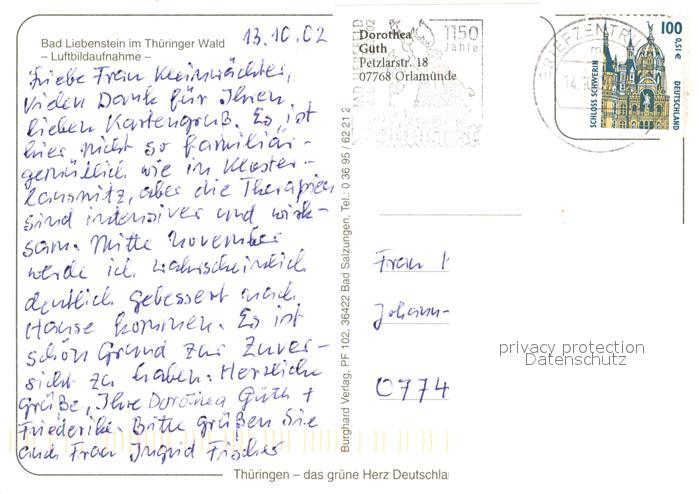 Bad Liebenstein im Thüringer Wald
– Luftbildaufnahme –
13.10.02
Liebe Frau Kleinwächter,
vielen Dank für Ihren
lieben Kartengruß. Es ist
hier nicht so familiär-
gemütlich wie in Kloster-
lausnitz, aber die Therapien
sind intensiver und wirk-
sam. Mitte November
werde ich wahrscheinlich
deutlich gebessert nach
Hause kommen. Es ist
schön Grund zur Zuver-
sicht zu haben. Herzliche
Grüße, Ihre Dorothea Güth +
Friederike. Bitte grüßen Sie
auch Frau Ingrid Fischer
Burghard Verlag, PF 102, 36422 Bad Salzungen, Tel.: 0 36 95 / 62 21 2
Dorothea
Güth
Petzlarstr. 18
07768 Orlamünde
1150
Jahre
BRIEFZENTRUM
14.
100
0,51€
SCHLOSS SCHWERIN
DEUTSCHLAND
Frau
Johann-
0774
privacy protection
Datenschutz
Thüringen – das grüne Herz Deutschla